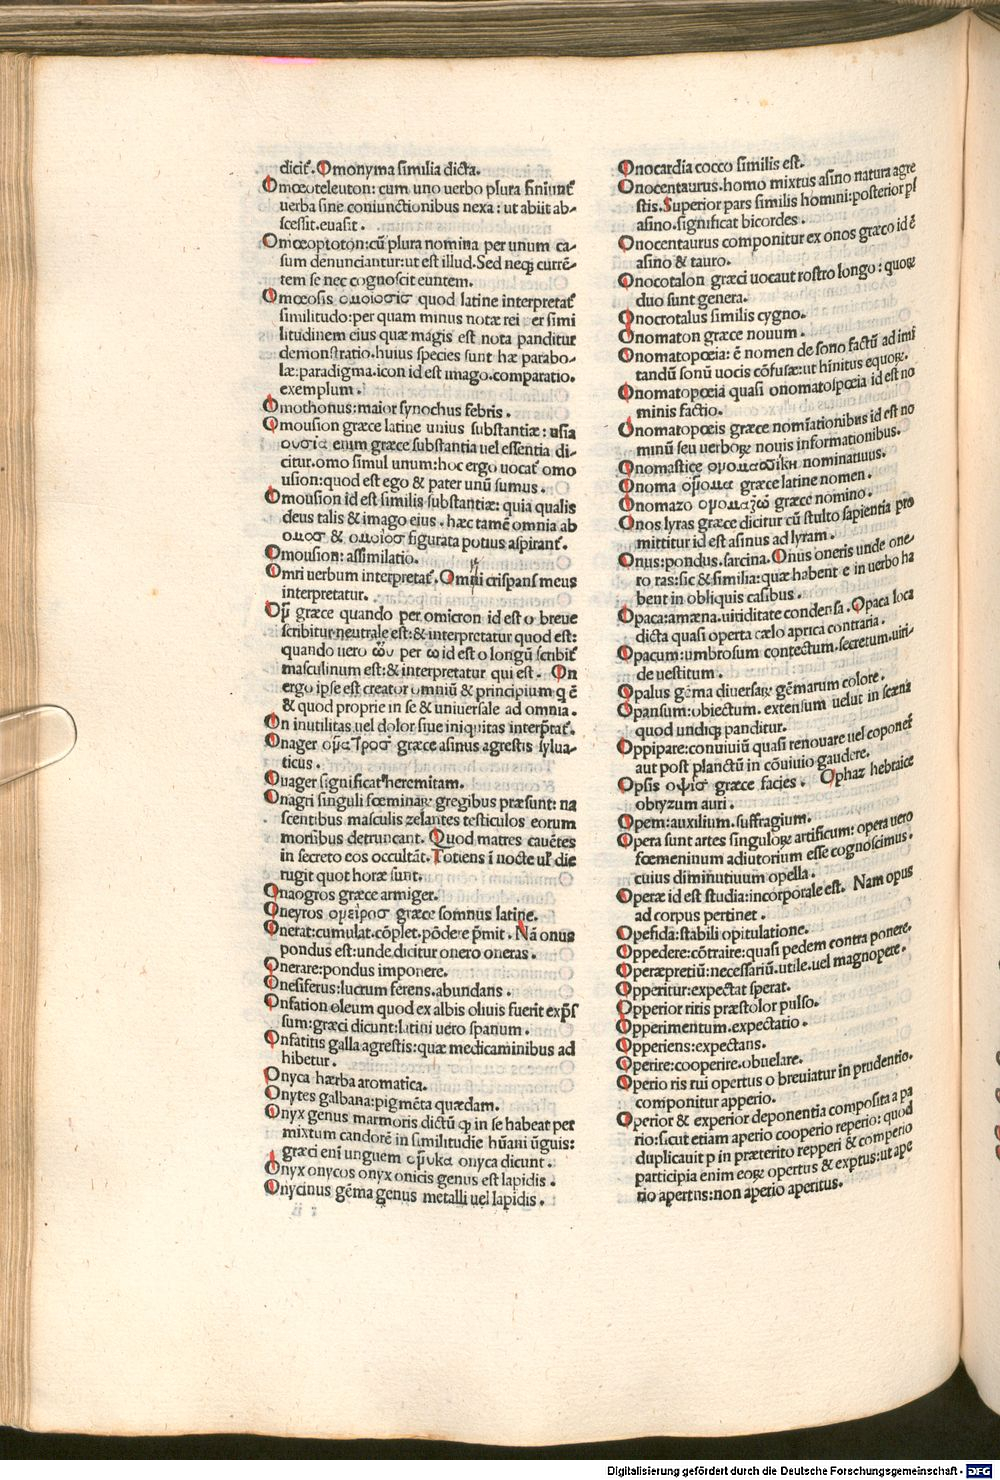 dicit᷑. Omonyma similia dicta.
Omœoteleuton: cum uno uerbo plura finiunt᷑
uerba sine coniunctionibus nexa: ut abiit ab-
scessit.euasit.
Omœoptotõ:cũ plura nomina per unum ca-
sum denunciantur:ut est illud.Sed neqꝫ currẽ-
tem se nec cognoscit euntem.
Omœosis ομοιοσισ quod latine interpretat᷑
similitudo:per quam minus notæ rei er simi
litudinem eius quæ magis est nota panditur
demonstratio.huius species sunt hæ parabo-
læ:paradigma.icon id est imago.comparatio.
exemplum.
Omothonus:maior synochus febris.
Omousion græce latine unius substantiæ: usia
ουσια enim græce substantia uel essentia di-
citur.omo simul unum:hoc ergo uocat᷑ omo
usion:quod est ego & pater unũ sumus.
Omousion id est similis substantiæ: quia qualis
deus talis & imago eius. hæc tamẽ omnia ab
ομοσ & ομοιοσ figurata potius aspirant᷑.
Omousion: assimilatio.
Omri uerbum interpretat᷑. Omni crispans meus
interpretatur.
græce quando per omicron id est o breue
scribitur neutrale est:& interpretatur quod est:
quando uero ὢν per ω id est o longũ scribit᷑
masculinum est:& interpretatur qui est. On
ergo ipse est creator omniũ & principium q ẽ
& quod proprie in se & uniuersale ad omnia.
On inutilitas uel dolor siue iniquitas interp̃tat᷑.
Onager græce asinus agrestis sylua-
ticus.
Onager significat heremitam.
Onagri singuli fœminaꝝ gregibus præsunt: na
scentibus masculis zelantes testiculos eorum
morsibus detruncant. Quod matres cauẽtes
in secreto eos occultãt. Totiens ĩ nocte ul' die
rugit quot horæ sunt.
Onaogros græce armiger.
Oneyros ονειροσ græce somnus latine.
Onerat:cumulat.cõplet.põdere p̃mit. Nã onus
pondus est:unde dicitur onero oneras.
Onerare:pondus imponere.
Onesiferus:lucrum ferens.abundans.
Onfation oleum quod ex albis oliuis fuerit exp̃s
sum:græci dicunt:latini uero spanum.
Onfatitis galla agrestis:quæ medicaminibus ad
hibetur.
Onyca hærba aromatica.
Onytes galbana:pigmẽta quædam.
Onyx genus marmoris dictũ ꝙ in se habeat per
mixtum candorẽ in similitudie hũani ũguis:
græci enĩ unguem onyca dicunt.
Onyx onycos onyx onicis genus est lapidis.
Onycinus gẽma genus metalli uel lapidis.
Onocardia cocco similis est.
Onocentaurus.homo mixtus asino natura agre
stis.Superior pars similis homini:posterior
asino.significat bicordes.
Onocentaurus componitur ex onos græco id ẽ
asino & tauro.
Onocotalon græci uocaut rostro longo: quoꝝ
duo sunt genera.
Onocrotalus similis cygno.
Onomaton græce nouum.
Onomatopœia: ẽ nomen de sono factũ ad imi
tandũ sonũ uocis cõfusæ:ut hinitus equoꝝ.
Onomatopœia quasi onomatospœia id est no
minis factio.
Onomatopœis græce nomiationibus id est no
minũ seu uerboꝝ nouis informationibus.
Onomastice nominatiuus.
Onoma græce latine nomen.
Onomazo græce nomino.
Onos lyras græce dicitur cũ stulto sapientia pro
mittitur id est asinus ad lyram.
Onus:pondus.sarcina. Onus oneris unde one-
ro ras:sic & similia:quæ habent e in uerbo ha
bent in obliquis casibus.
Opaca:amæna.uiriditate condensa. Opaca loca
dicta quasi operta cælo aprica contraria.
Opacum:umbrosum contectum.secretum.uiri-
de uestitum.
Opalus gẽma diuersaꝝ gẽmarum colore.
Opansum:obiectum. extensum uelut in scæna
quod undiqꝫ panditur.
Oppipare:conuiuiũ quasi renouare uel coponet᷑
aut post planctũ in cõuiuio gaudere.
Opsis οψισ græce facies. Ophaz hebraice
obryzum auri.
Opem:auxilium.suffragium.
Opera sunt artes singuloꝝ artificum: opera uero
fœmeninum adiutorium esse cognoscimus.
cuius diminutiuum opella.
Operæ id est studia:incorporale est. Nam opus
ad corpus pertinet.
Opefida:stabili opitulatione.
Oppedere:cõtraire:quasi pedem contra ponere.
Operæpretiũ:necessariũ.utile.uel magnopere.
Opperitur:expectat sperat.
Opperior riris præstolor pulso.
Opperimentum.expectatio.
Opperiens:expectans.
Operire:cooperire.obuelare.
Operio ris rui opertus o breuiatur in prudentio.
componitur apperio.
Operior & experior deponentia composita a pa
rio:sicut etiam aperio cooperio reperio: quod
duplicauit p in præterito repperi & comperio
participia enim eoꝝ opertus & exptus:ut ape
rio apertus:non aperio aperitus.
Digitalisierung gefördert durch die Deutsche Forschungsgemeinschaft - DFG